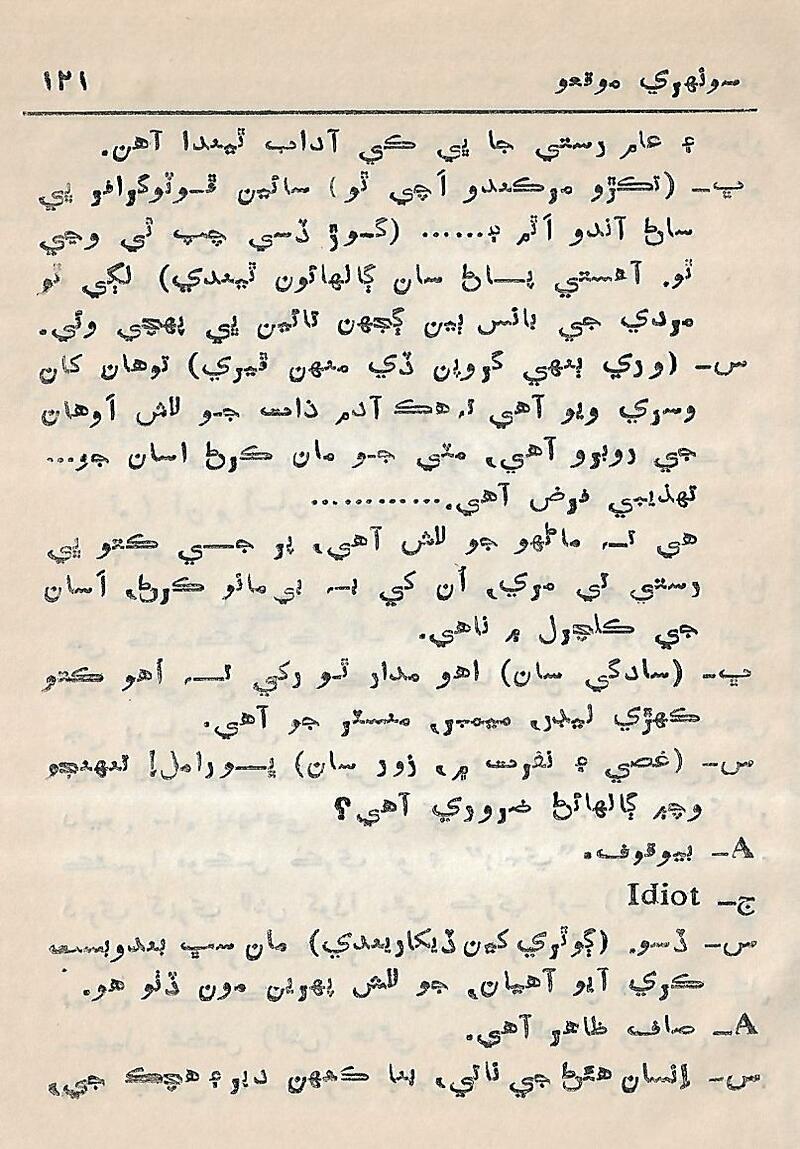 سونهري موقعو ١٢١
۽ عام رستي جا پي ڪي آداب ٿيندا آهن.
پ— (تڪڙو مرڪندو اَچي ٿو) سائين ڦـوٽوگرافر پي
ساڻ آندو اَٿم ۽...... (گـوڙ ڏسي چپ ٿي وڃي
ٿو. آهستي پـاڻ سان ڳالهائون ٿيندي) لڳي ٿو
مردي جي بانس ٻين ڳچهن تائين پي پهچي وئي.
س— (وري ٻنهي گروپن ڏي منهن ڦيري) توهان کان
وسري ويو آهي تہ هڪ آدم ذات جـو لاش اَوهان
جي روبرو آهي، مٽي جـو مان ڪرڻ اسان جو...
تهذيبي فرض آهي.............
هي تـہ ماڻهو جو لاش آهي، پر جـي ڪتو پي
رستي تي مري، اُن کي بـہ بي مانو ڪرڻ، اَسان
جي ڪلچرل ۾ ناهي.
پ— (سادگي سان) اهو مدار ٿـو رکي تـہ اهو ڪتو
ڪهڙي ليڊر، ميمبر، منسٽر جو آهي.
س— (غصي ۽ نفرت ۾، زور سان) پـورامل! تنهنجو
وچ۾ ڳالهائڻ ضروري آهي؟
A— بيوقوف.
ج— Idiot
س— ڏسو. (ڳوٿري کين ڏيکاريندي) مان سڀ بندوبست
ڪري آيو آهيان، جو لاش پهرين مون ڏٺو هو.
A— صاف ظاهر آهي.
س— اِنسان هئڻ جي ناتي، بنا ڪنهن دير ۽ هچڪ جي،